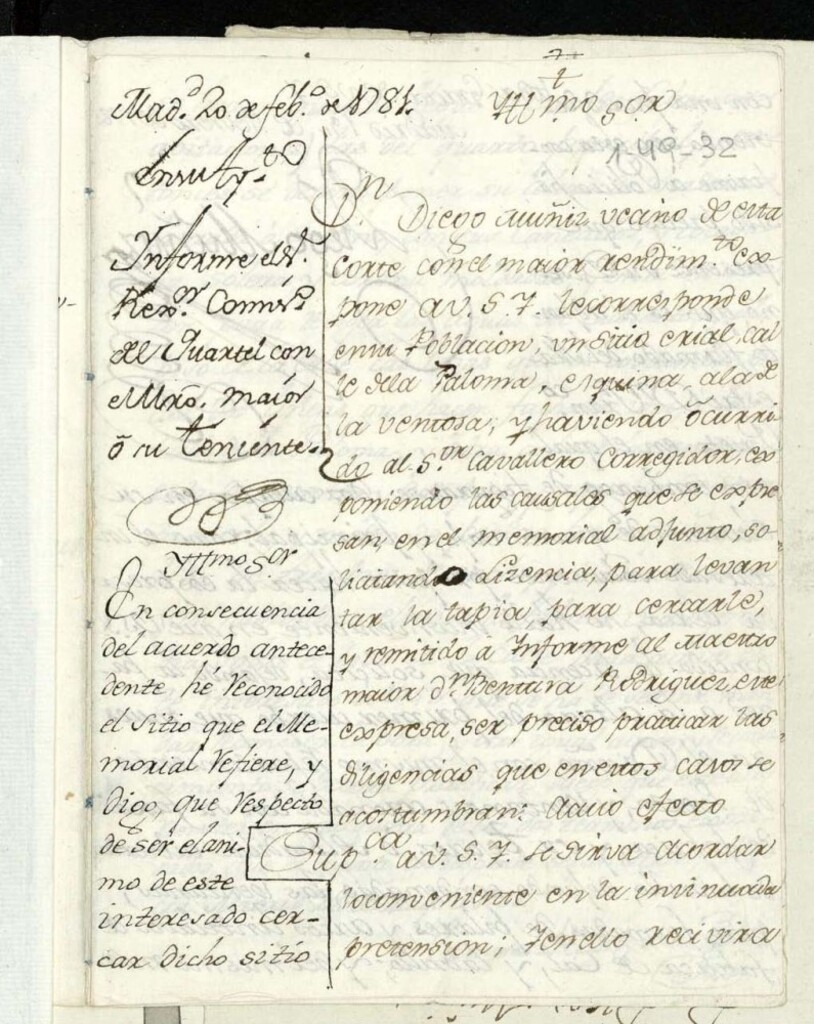 Mad.d 20 de feb.o de 1781.
En su Ay.to
Informe el S.r
Rex.or Comis.o
del Quartel con
el Mro. maior
ô su Teniente.
Yttmo Sor
En consecuencia
del acuerdo antece-
dente hé Reconocido
el sitio que el Me-
morial Refiere, y
digo, que Respecto
de ser el ani-
mo de este
interesado cer-
car dicho sitio
Yttmo Sor
1-49-32
D.n Diego Muñiz vecino de esta
Corte con el maior rendim.to ex-
pone a V. S. Y. le corresponde
en su Poblacion, un sitio erial, cal
le dela Paloma, esquina, a la de
la ventosa, y haviendo ôcurri-
do al S.or Cavallero Corregidor, ex
poniendo las causales que se expre
san, en el memorial adjunto, so-
licitando Lizencia, para levan
tar la tapia, para cercarle,
y remitido â Informe al Maestro
maior d.n Bentura Rodriguez, este
expresa, ser preciso practicar las
diligencias que en estos casos se
acostumbran: A cuio efecto
Sup.ca a V. S. Y. se sirva acordar
lo conveniente en la insinuada
pretension; Y en ello recivira